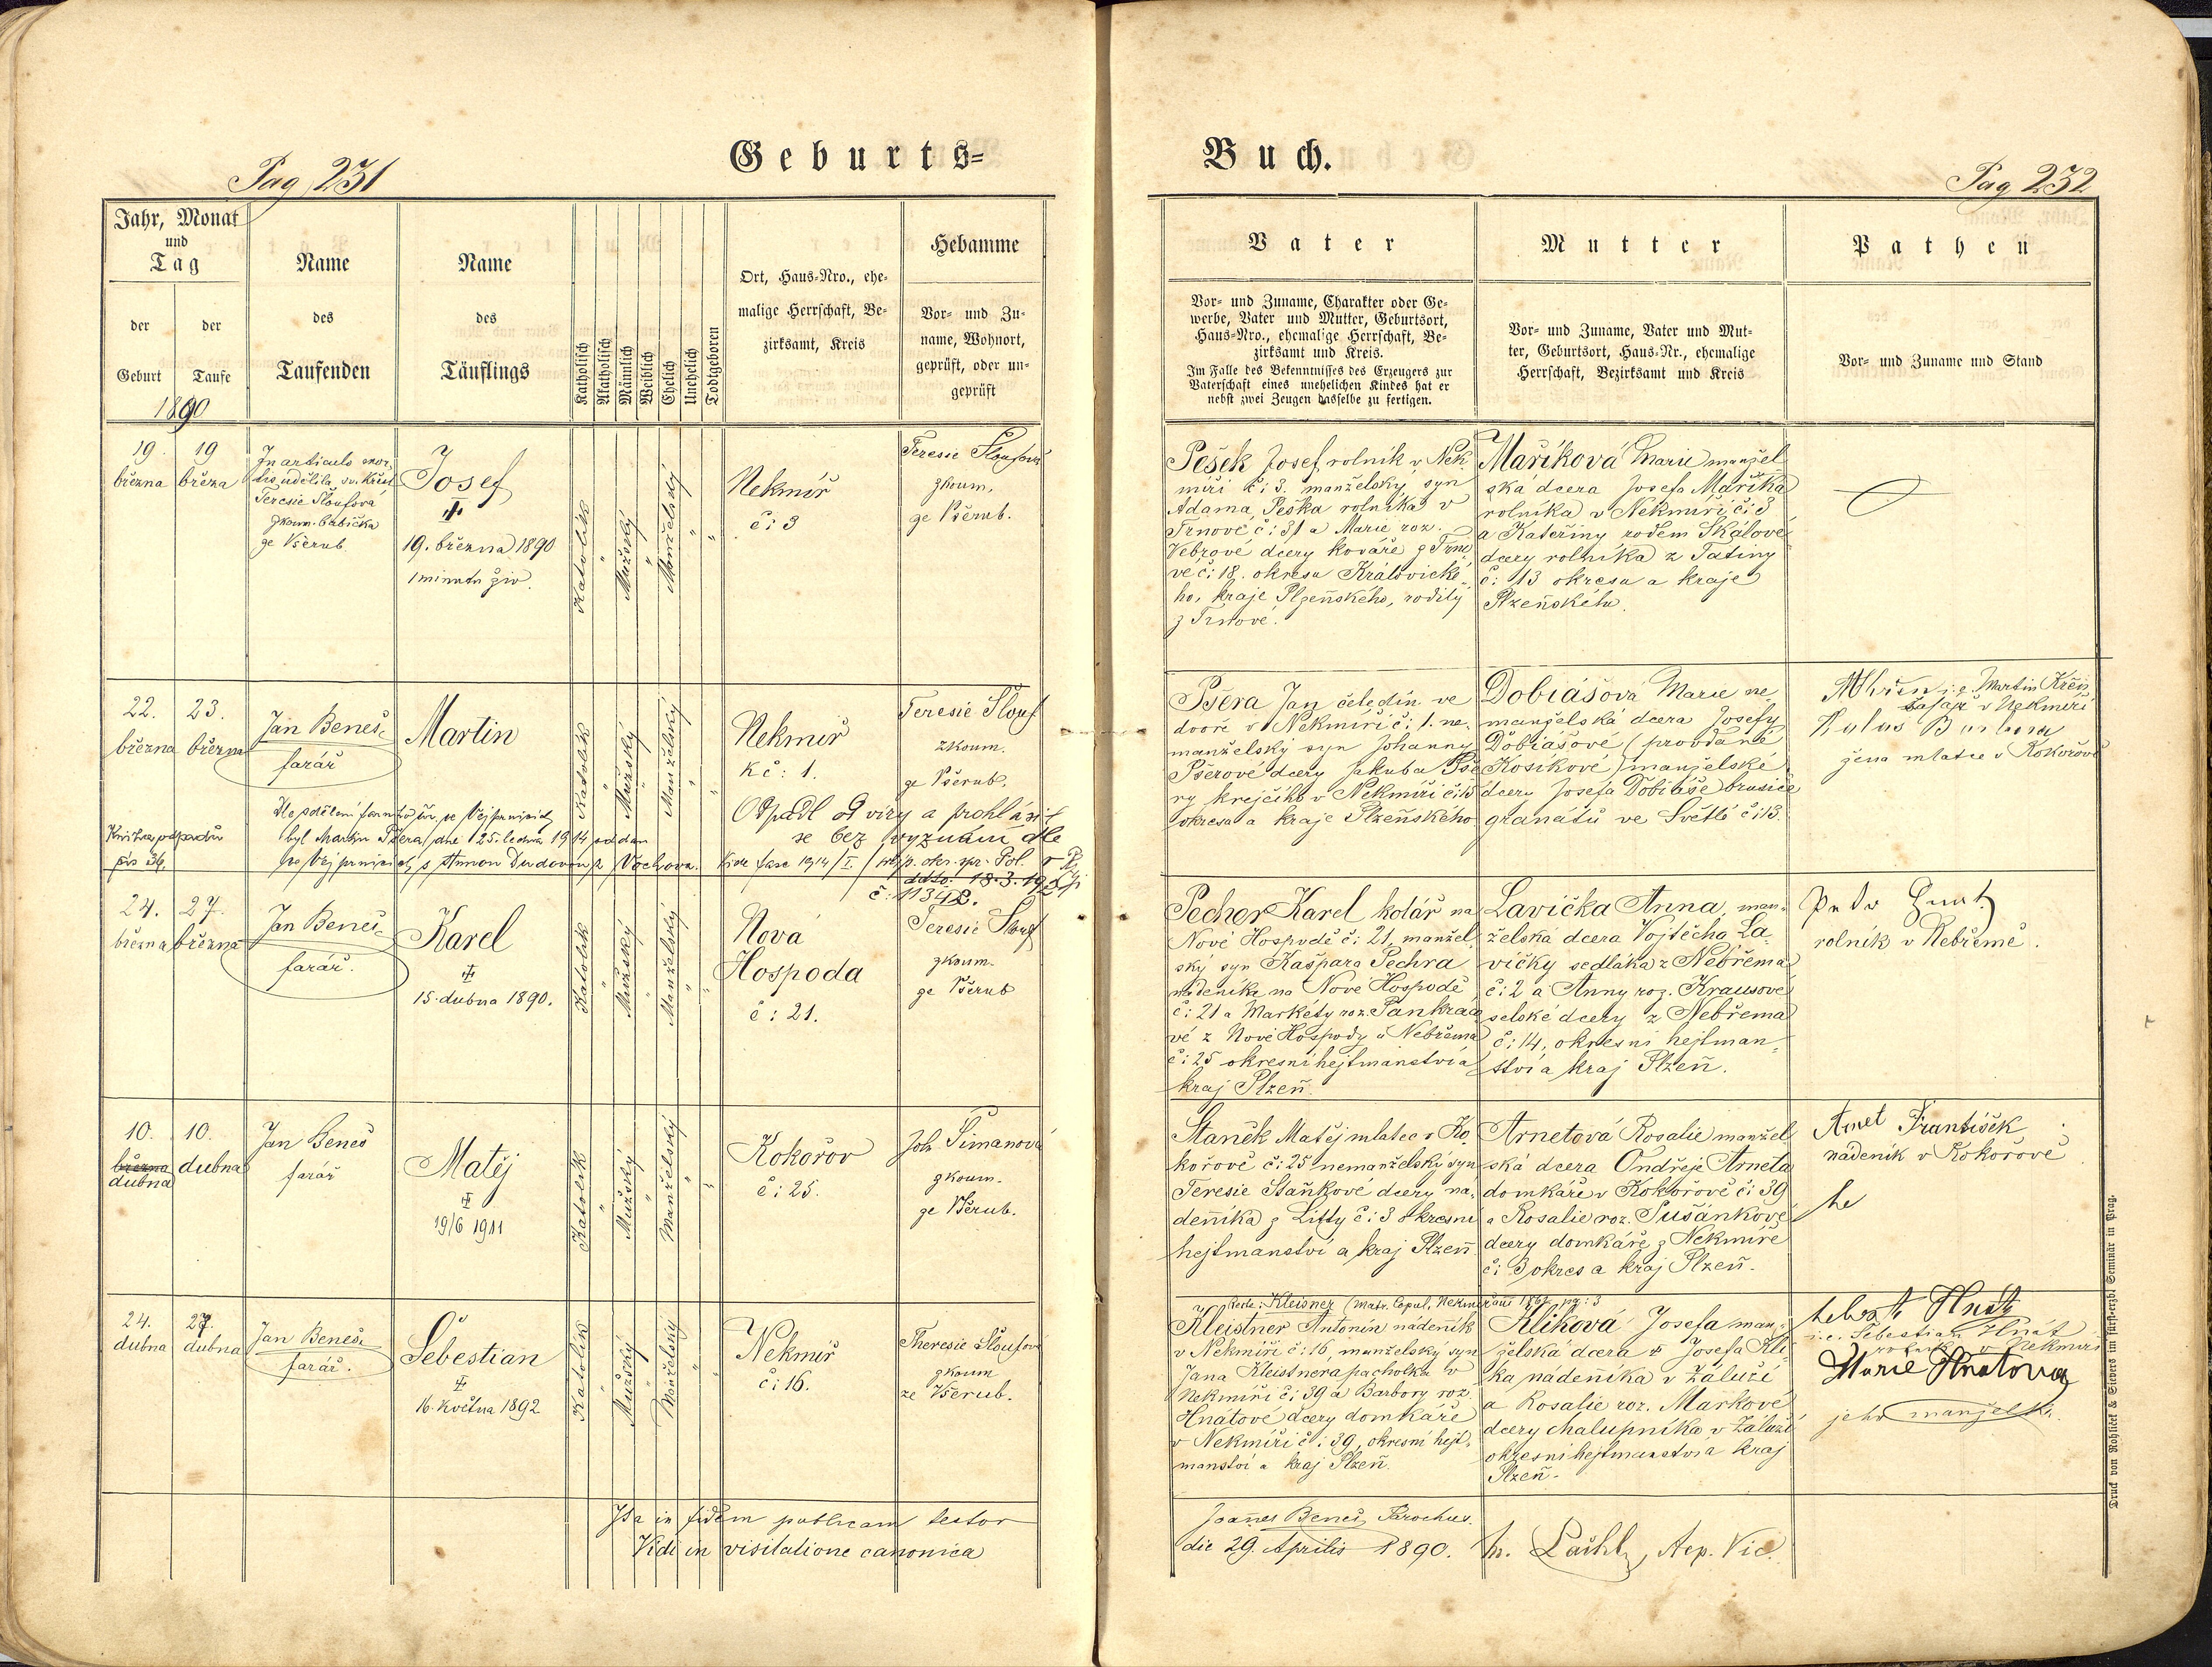 Geburts=
Buch.
Pag 231
Pag 232
Jahr, Monat
und
Tag
der
Geburt
der
Taufe
1890
Name
des
Taufenden
Name
des
Täuflings
Katholisch
Akatholisch
Männlich
Weiblich
Ehelich
Unehelich
Todtgeboren
Ort, Haus-Nro., ehe-
malige Herrschaft, Be-
zirksamt, Kreis
Hebamme
Vor- und Zu-
name, Wohnort,
geprüft, oder un-
geprüft
Vater
Vor- und Zuname, Charakter oder Ge-
werbe, Vater und Mutter, Geburtsort,
Haus-Nro., ehemalige Herrschaft, Be-
zirksamt und Kreis.
Im Falle des Bekenntnisses des Erzeugers zur
Vaterschaft eines unehelichen Kindes hat er
nebst zwei Zeugen dasselbe zu fertigen.
Mutter
Vor- und Zuname, Vater und Mut-
ter, Geburtsort, Haus-Nr., ehemalige
Herrschaft, Bezirksamt und Kreis
Pathen
Vor- und Zuname und Stand
19.
března
19
března
In articulo mor-
tis udělila sv. křest
Teresie Šloufová
zkoum. babička
ze Všerub
Josef
19. března 1890
1 minutu živ.
Katolík
"
Mužský
"
Manželský
"
"
Nekmíř
č: 3
Teresie Šloufová
zkoum.
ze Všerub.
Pešek Josef, rolník v Nek-
míři č: 3. manželský syn
Adama Peška rolníka v
Trnové č: 31 a Marie roz.
Vebrové dcery kováře z Trno-
vé č: 18. okresu Královické-
ho, kraje Plzeňského, rodilý
z Trnové.
Maříková Marie manžel-
ská dcera Josefa Maříka
rolníka v Nekmíři č: 3
a Kateřiny rodem Skálové
dcery rolníka z Tatiny
č: 13 okresu a kraje
Plzeňského.
22.
března
23.
března
Jan Beneš
farář
Martin
Katolík
"
Mužský
"
Manželský
"
"
Nekmíř
k č: 1.
Teresie Šlouf
zkoum.
ze Všerub.
Pšera Jan čeledín ve
dvoře v Nekmíři č: 1. ne-
manželský syn Johanny
Pšerové dcery Jakuba Pše-
ry krejčího v Nekmíři č: 15
okresu a kraje Plzeňského
Dobiášová Marie ne
manželská dcera Josefy
Dobiášové (provdané
Kosikové) manželské
dcery Josefa Dobiáše brusiče
granátů ve Světlé č: 13.
i.e. Martin Křen
šafář v Nekmíři
Barbora
žena mlatce v Kokořově
byl Martin Pšera dne 25. ledna 1914 oddán
s Annou Dudovou z Vochova.
Kniha odpadů
pís 36.
Odpadl od víry a prohlásil
se bez vyznání dle
přip. okr. spr. pol. v Pl
ddto. 18.3.192
č: 11348.
24.
března
27.
března
Jan Beneš
farář.
Karel
15. dubna 1890.
Katolík
"
Mužský
"
Manželský
"
"
Nová
Hospoda
č: 21.
Teresie Šlouf
zkoum.
ze Všerub
Pecher Karel kolář na
Nové Hospodě č: 21, manžel-
ský syn Kašpara Pechra
nádeníka na Nové Hospodě
č: 21 a Markéty roz. Pankrá
vé z Nové Hospody u Nebřema
č: 25 okresní hejtmanství a
kraj Plzeň.
Lavička Anna, man-
želská dcera Vojtěcha La-
vičky sedláka z Nebřema
č: 2 a Anny roz. Krausové
selské dcery z Nebřema
č: 14, okresní hejtman-
ství a kraj Plzeň.
rolník v Nebřemě.
10.
března
dubna
10.
dubna
Jan Beneš
farář
Matěj
19/6 1911
Katolík
"
Mužský
"
Manželský
"
"
Kokořov
č: 25.
Joh Šimanová
zkoum.
ze Všerub.
Staněk Matěj mlatec v Ko-
kořově č: 25 nemanželský syn
Teresie Staňkové dcery ná-
deníka z Litty č: 3 okresní
hejtmanství a kraj Plzeň.
Arnetová Rosalie manžel-
ská dcera Ondřeje Arneta
domkáře v Kokořově č: 39
a Rosalie roz. Sušánkové
dcery domkáře z Nekmíře
č: 3 okres a kraj Plzeň.
Arnet František
nádeník v Kokořově
24.
dubna
27.
dubna
Jan Beneš
farář.
Šebestian
16. května 1892
Katolík
"
Mužský
"
Manželský
"
Nekmíř
č: 16.
Theresie Šloufová
zkoum
ze Všerub.
Recte: Kleisner (Matr. Copul. Nekmíř
Kleistner Antonín nádeník
v Nekmíři č: 16, manželský syn
Jana Kleistnera pacholka v
Nekmíři č: 39 a Barbory roz.
Hnátové dcery domkáře
v Nekmíři č: 39, okresní hejt-
manství a kraj Plzeň.
Kliková Josefa man-
želská dcera Josefa Kli-
ka nádeníka v Záluží
a Rosalie roz. Markové
dcery chalupníka v Záluží
okresní hejtmanství a kraj
Plzeň.
Hnát
i.e. Šebestian Hnát
rolník v Nekmíři
Marie Hnátova
jeho manželka.
Ita in fidem publicam testor
Joañes Beneš, Parochus.
Vidi in visitatione canonica
die 29. Aprilis 1890.
Aep. Vic.
Druck von Rohlíček & Sievers im fürst-erzb. Seminär in Prag.